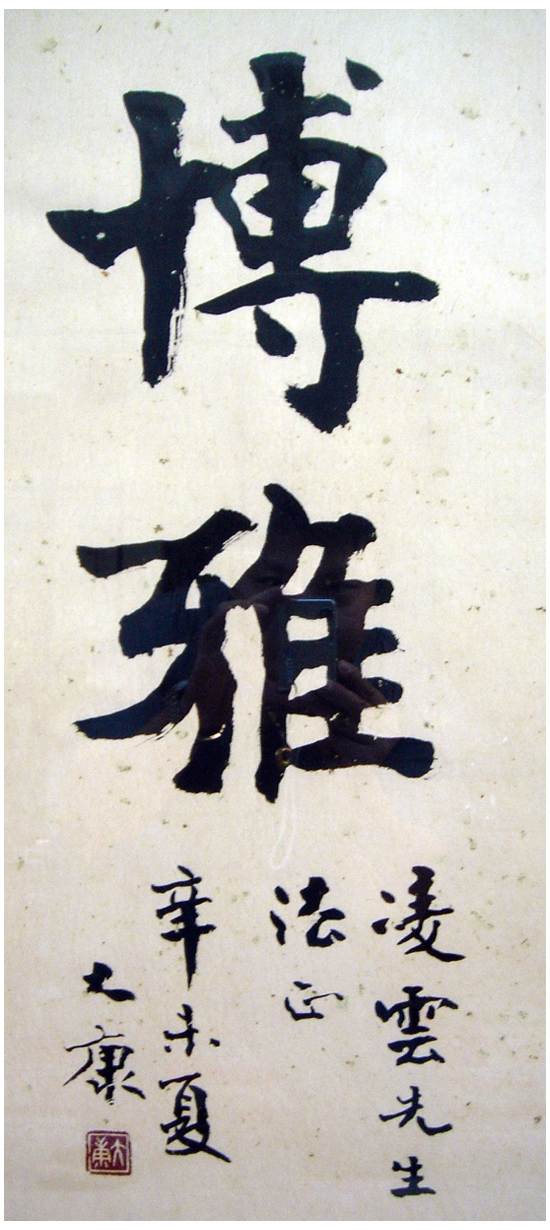 博雅
凌雲先生
法正
辛未夏
大康
大康